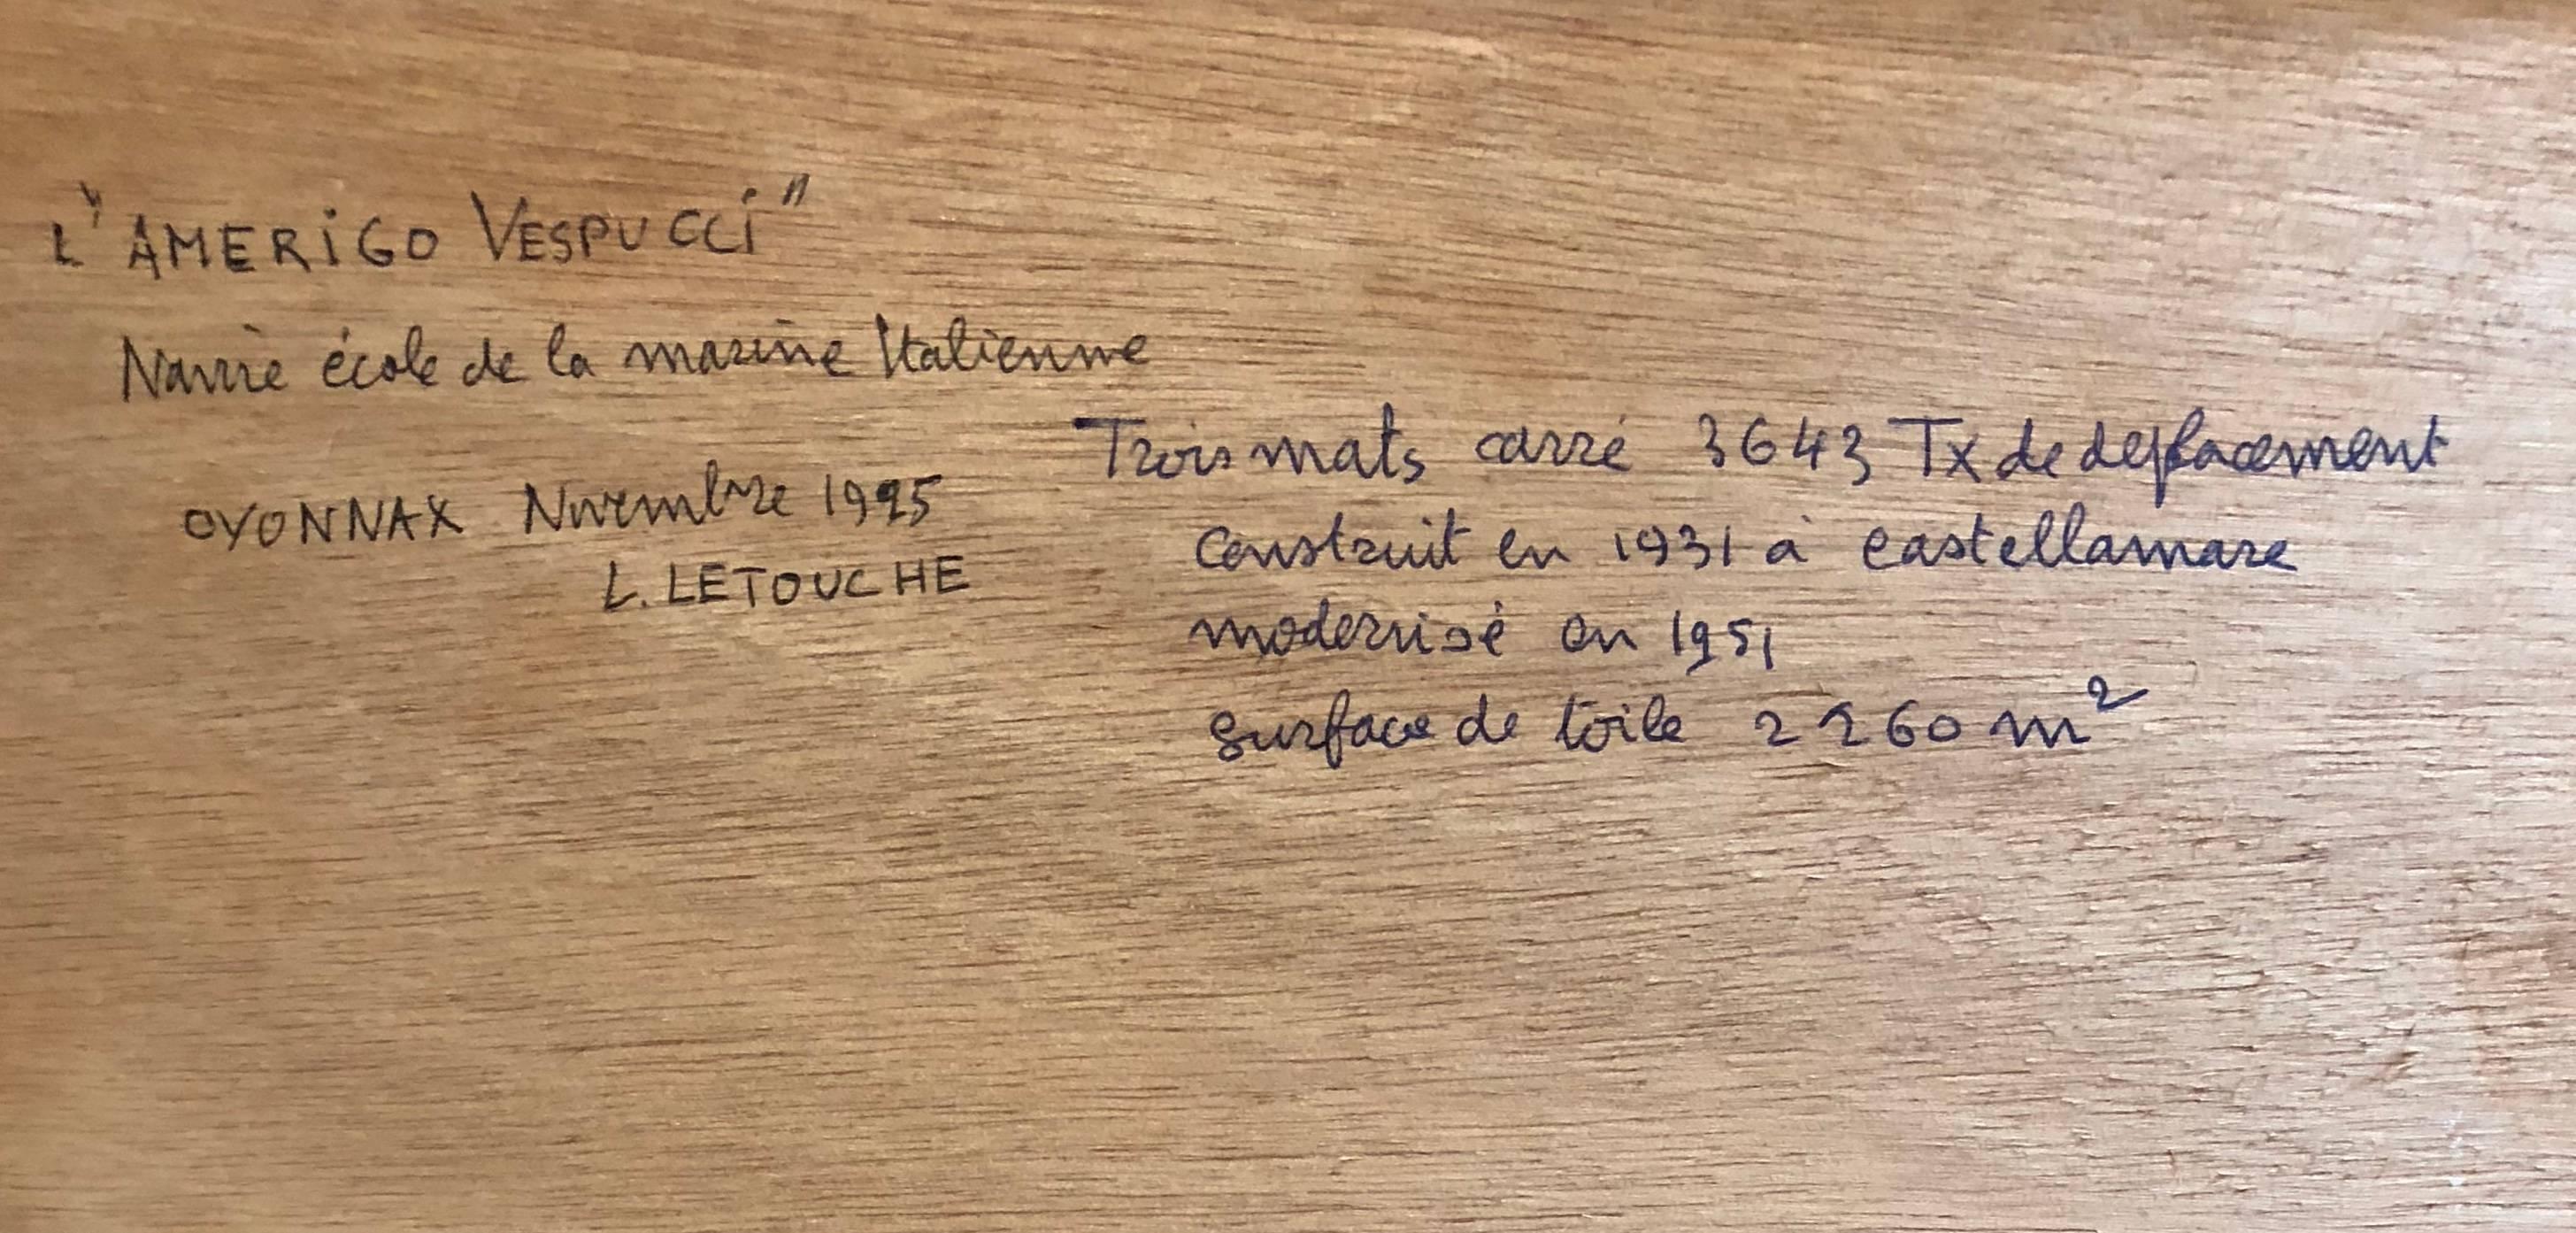 L'"AMERIGO VESPUCCI"
Navire école de la marine Italienne
OYONNAX Novembre 1995
L. LETOUCHE
Trois mats carré 3643 Tx de deplacement
Construit en 1931 à castellamare
modernisé en 1951
surface de toile 2260 m²